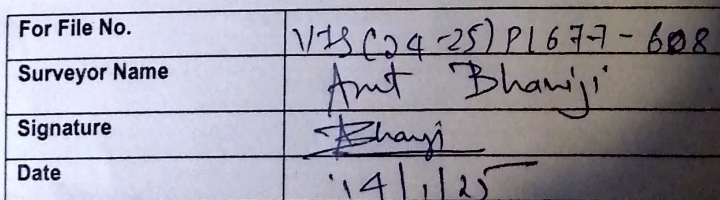 For File No. VIS(24-25)PL677-608
Surveyor Name Amit Bhanji
Signature Bhanji
Date 14/1/25